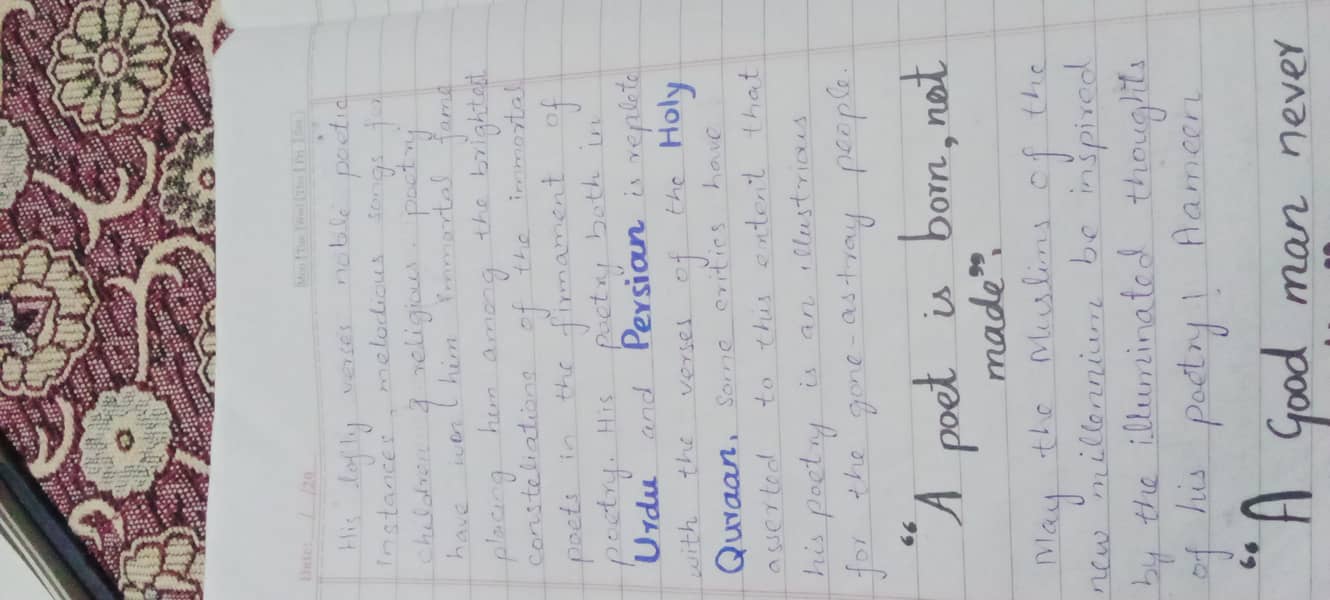 Date: __/20
Mon Tue Wed Thu Fri Sat
His lofly verses noble poetic
instances, melodious songs for
children & religious poetry
have won him immortal fame
placing him among the brightest
consteliations of the immortal
poets in the firmament of
poetry. His poetry both in
Urdu and Persian is replete
with the verses of the Holy
Quraan, some critics have
asserted to this extent that
his poetry is an illustrious
for the gone-astray people.
“A poet is born, not
made”
May the Muslims of the
new millennium be inspired
by the illuminated thoughts
of his poetry! Aameen
“A Good man never